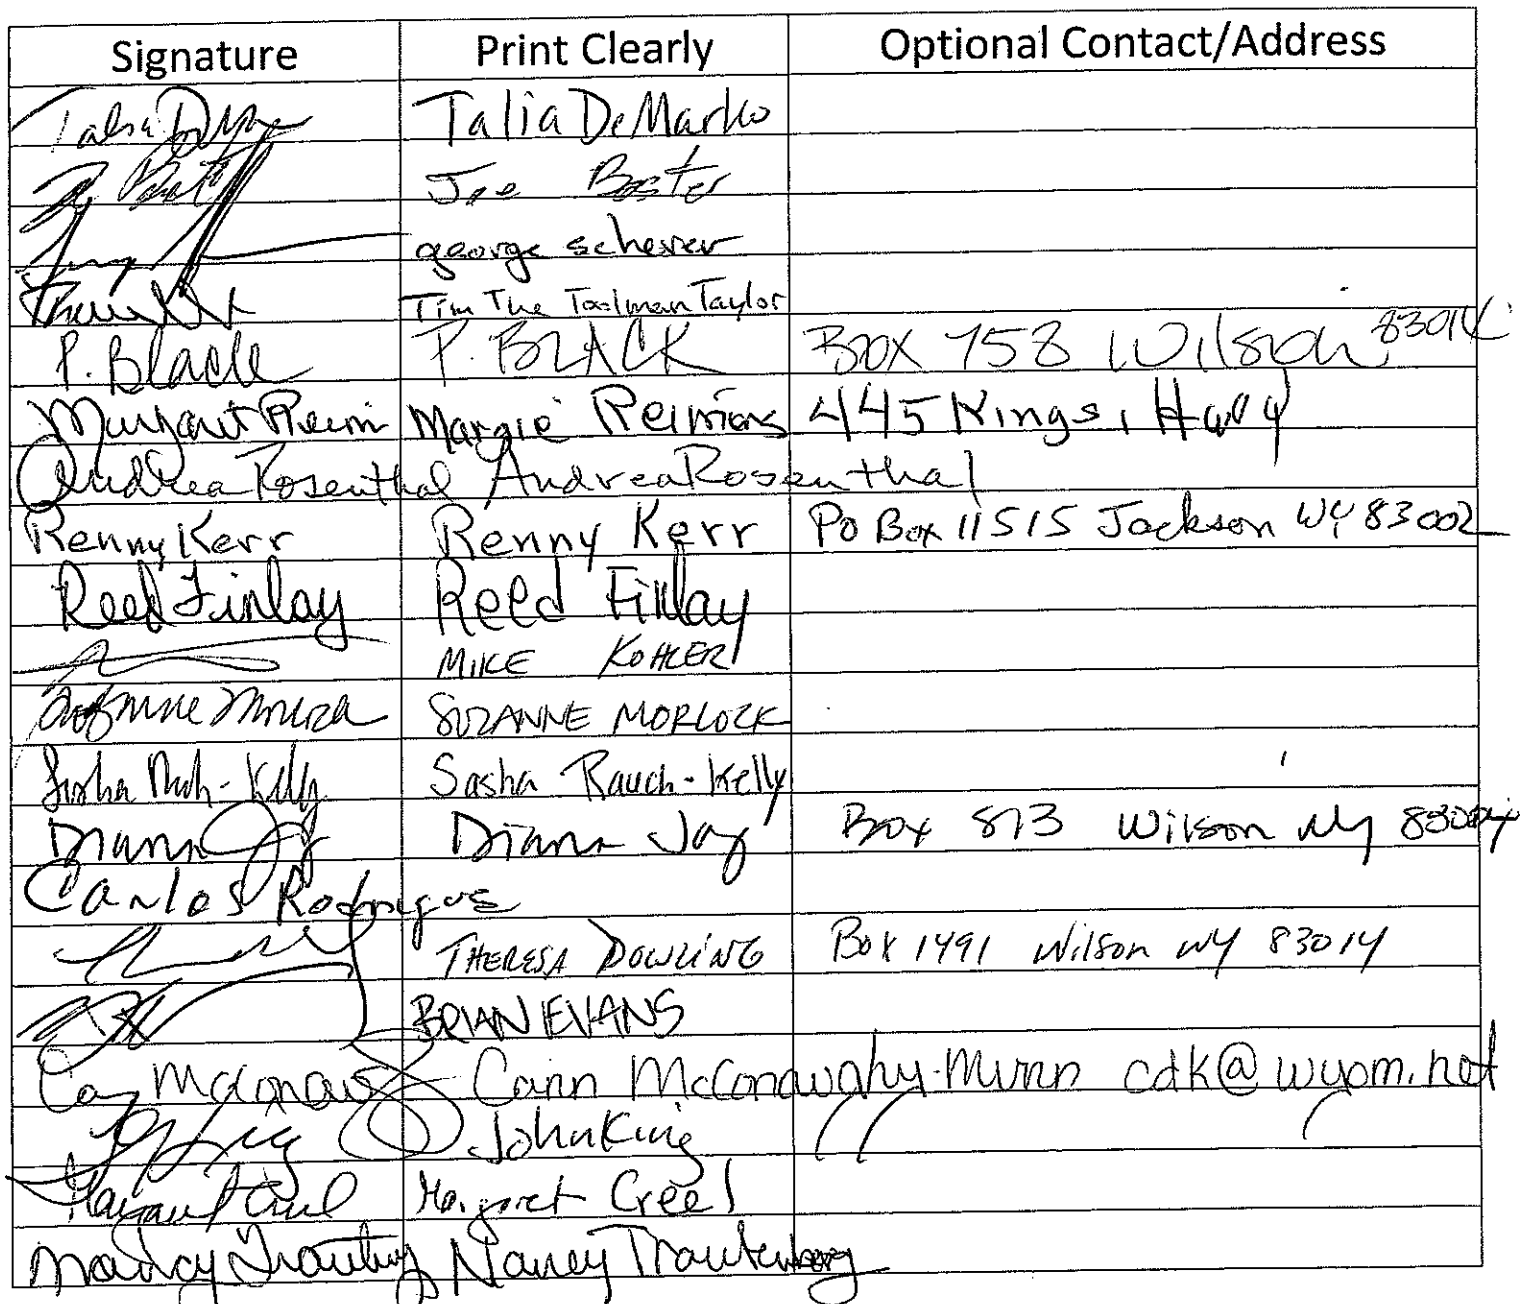 Signature Print Clearly Optional Contact/Address
Talia DeMarko
Joe Boster
george scherer
Tim The Toolman Taylor
P. Black P. BLACK Box 758 Wilson 83014
Margaret Margie 445 Kings Hwy
Andrea Rosenthal Andrea Rosenthal
Renny Kerr Renny Kerr Po Box 11515 Jackson WY 83002
Reed Finlay Reed Finlay
MIKE KOHLER
SUZANNE MORLOCK
Sasha Rauch-Kelly
Diana Jay Diana Jay Box 873 Wilson Wy 83014
Carlos Rodrigues
THERESA DOWLING Box 1491 Wilson WY 83014
BRIAN EVANS
McConaughy-Munn cdk@wyom.net
John King
Margaret Creel Margaret Creel
Nancy Nancy